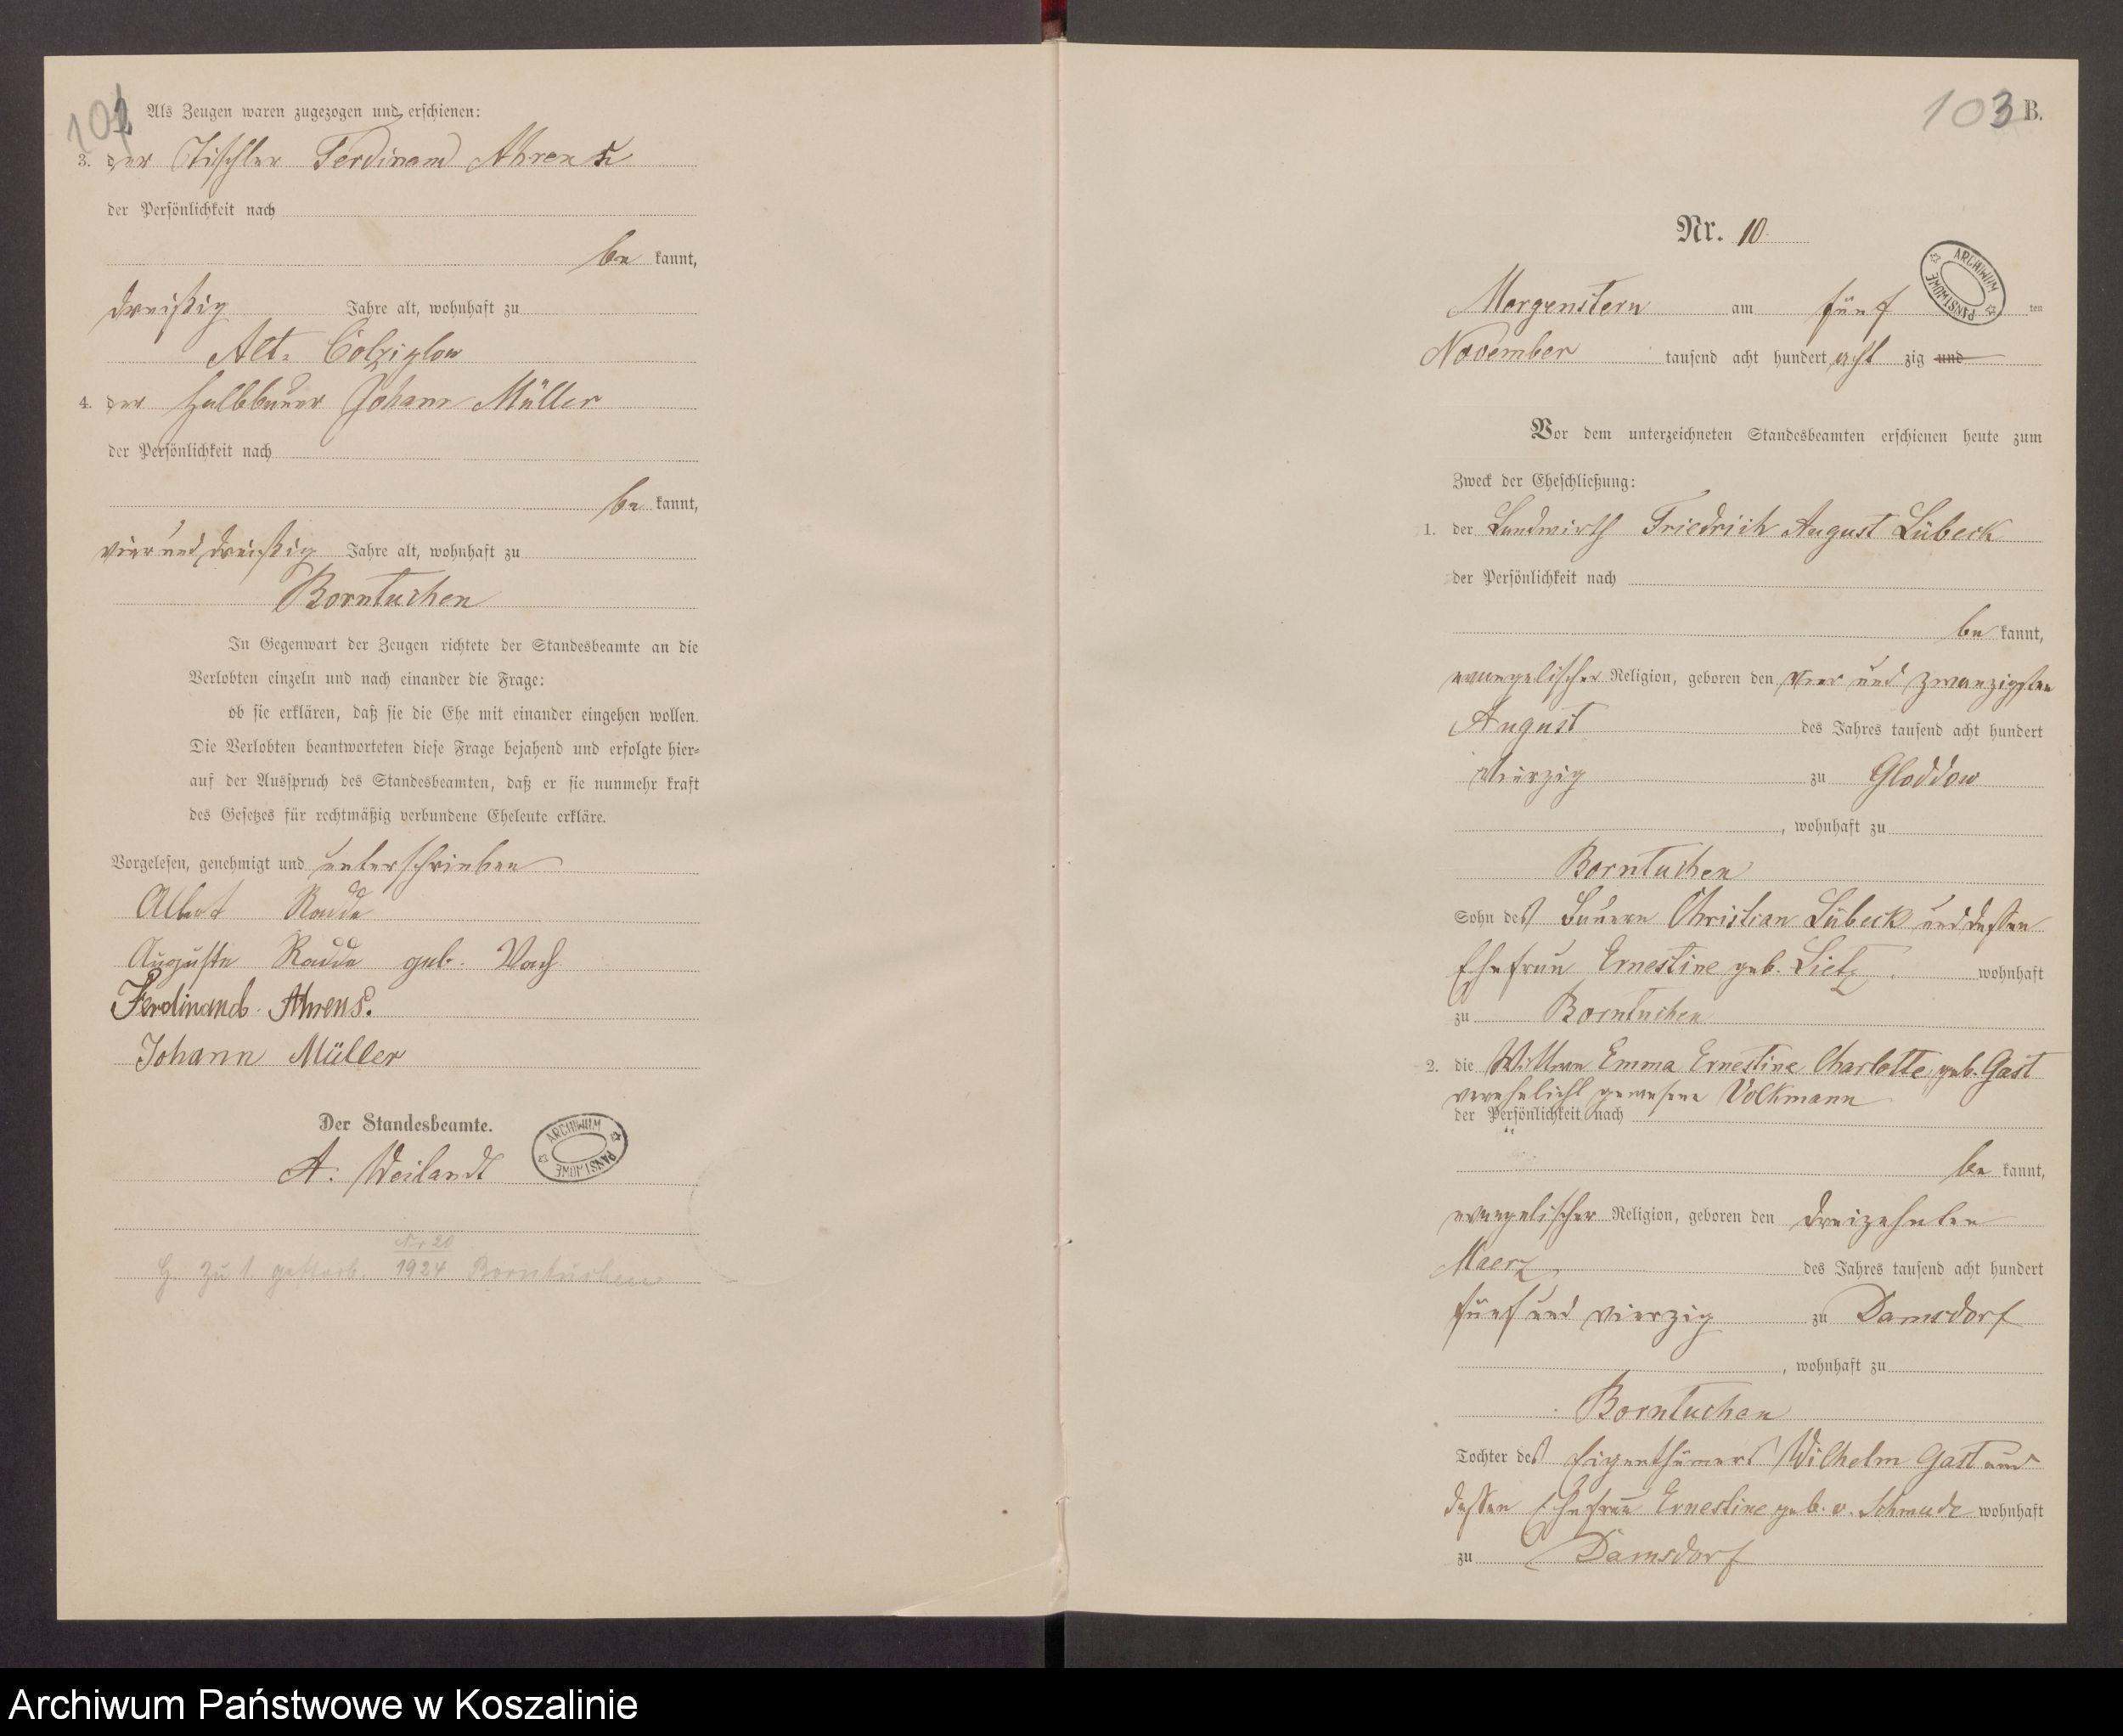 102
Als Zeugen waren zugezogen und erschienen:
3. der Tischler Ferdinand Ahrens
der Persönlichkeit nach
be kannt,
dreißig Jahre alt, wohnhaft zu
Alt-Colziglow
4. der Halbbauer Johann Müller
der Persönlichkeit nach
be kannt,
vier und dreißig Jahre alt, wohnhaft zu
Borntuchen
In Gegenwart der Zeugen richtete der Standesbeamte an die
Verlobten einzeln und nach einander die Frage:
ob sie erklären, daß sie die Ehe mit einander eingehen wollen.
Die Verlobten beantworteten diese Frage bejahend und erfolgte hier-
auf der Ausspruch des Standesbeamten, daß er sie nunmehr kraft
des Gesetzes für rechtmäßig verbundene Eheleute erkläre.
Vorgelesen, genehmigt und unterschrieben
Albert Radde
Auguste Radde geb.
Ferdinand Ahrens.
Johann Müller
Der Standesbeamte.
A. Weilandt
ARCHIWUM PAŃSTWOWE
Nr 20
zu 1 gestorb. 1924 Borntuchen
103 B.
Nr. 10.
ARCHIWUM PAŃSTWOWE
Morgenstern am fünf ten
November tausend acht hundert acht zig und
Vor dem unterzeichneten Standesbeamten erschienen heute zum
Zweck der Eheschließung:
1. der Landwirth Friedrich August Lübeck
der Persönlichkeit nach
be kannt,
evangelischer Religion, geboren den vier und zwanzigsten
August des Jahres tausend acht hundert
vierzig zu Gloddow
, wohnhaft zu
Borntuchen
Sohn des Bauern Christian Lübeck und dessen
Ehefrau Ernestine geb. Lietz. wohnhaft
zu Borntuchen
2. die Wittwe Emma Ernestine Charlotte, geb. Gast
verehelicht gewesene Volkmann
der Persönlichkeit nach
be kannt,
evangelischer Religion, geboren den dreizehnten
Maerz des Jahres tausend acht hundert
fünf und vierzig zu Damsdorf
, wohnhaft zu
Borntuchen
Tochter des Eigenthümers Wilhelm Gast und
dessen Ehefrau Ernestine geb. v. Schmude wohnhaft
zu Damsdorf
Archiwum Państwowe w Koszalinie